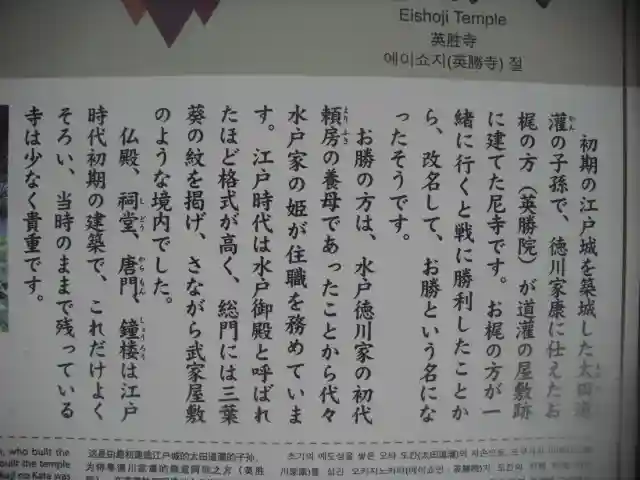 Eishoji Temple
英胜寺
에이쇼지(英勝寺) 절
初期の江戸城を築城した太田道
灌の子孫で、徳川家康に仕えたお
梶の方（英勝院）が道灌の屋敷跡
に建てた尼寺です。お梶の方が一
緒に行くと戦に勝利したことか
ら、改名して、お勝という名にな
ったそうです。
お勝の方は、水戸徳川家の初代
頼房の養母であったことから代々
水戸家の姫が住職を務めていま
す。江戸時代は水戸御殿と呼ばれ
たほど格式が高く、総門には三葉
葵の紋を掲げ、さながら武家屋敷
のような境内でした。
仏殿、祠堂、唐門、鐘楼は江戸
時代初期の建築で、これだけよく
そろい、当時のままで残っている
寺は少なく貴重です。
, who built the
built the temple
Kaji no Kata was
这是由最初建造江户城的太田道灌的子孙、
초기의 에도성을 쌓은 오타 도칸(太田道灌)의 자손으로,